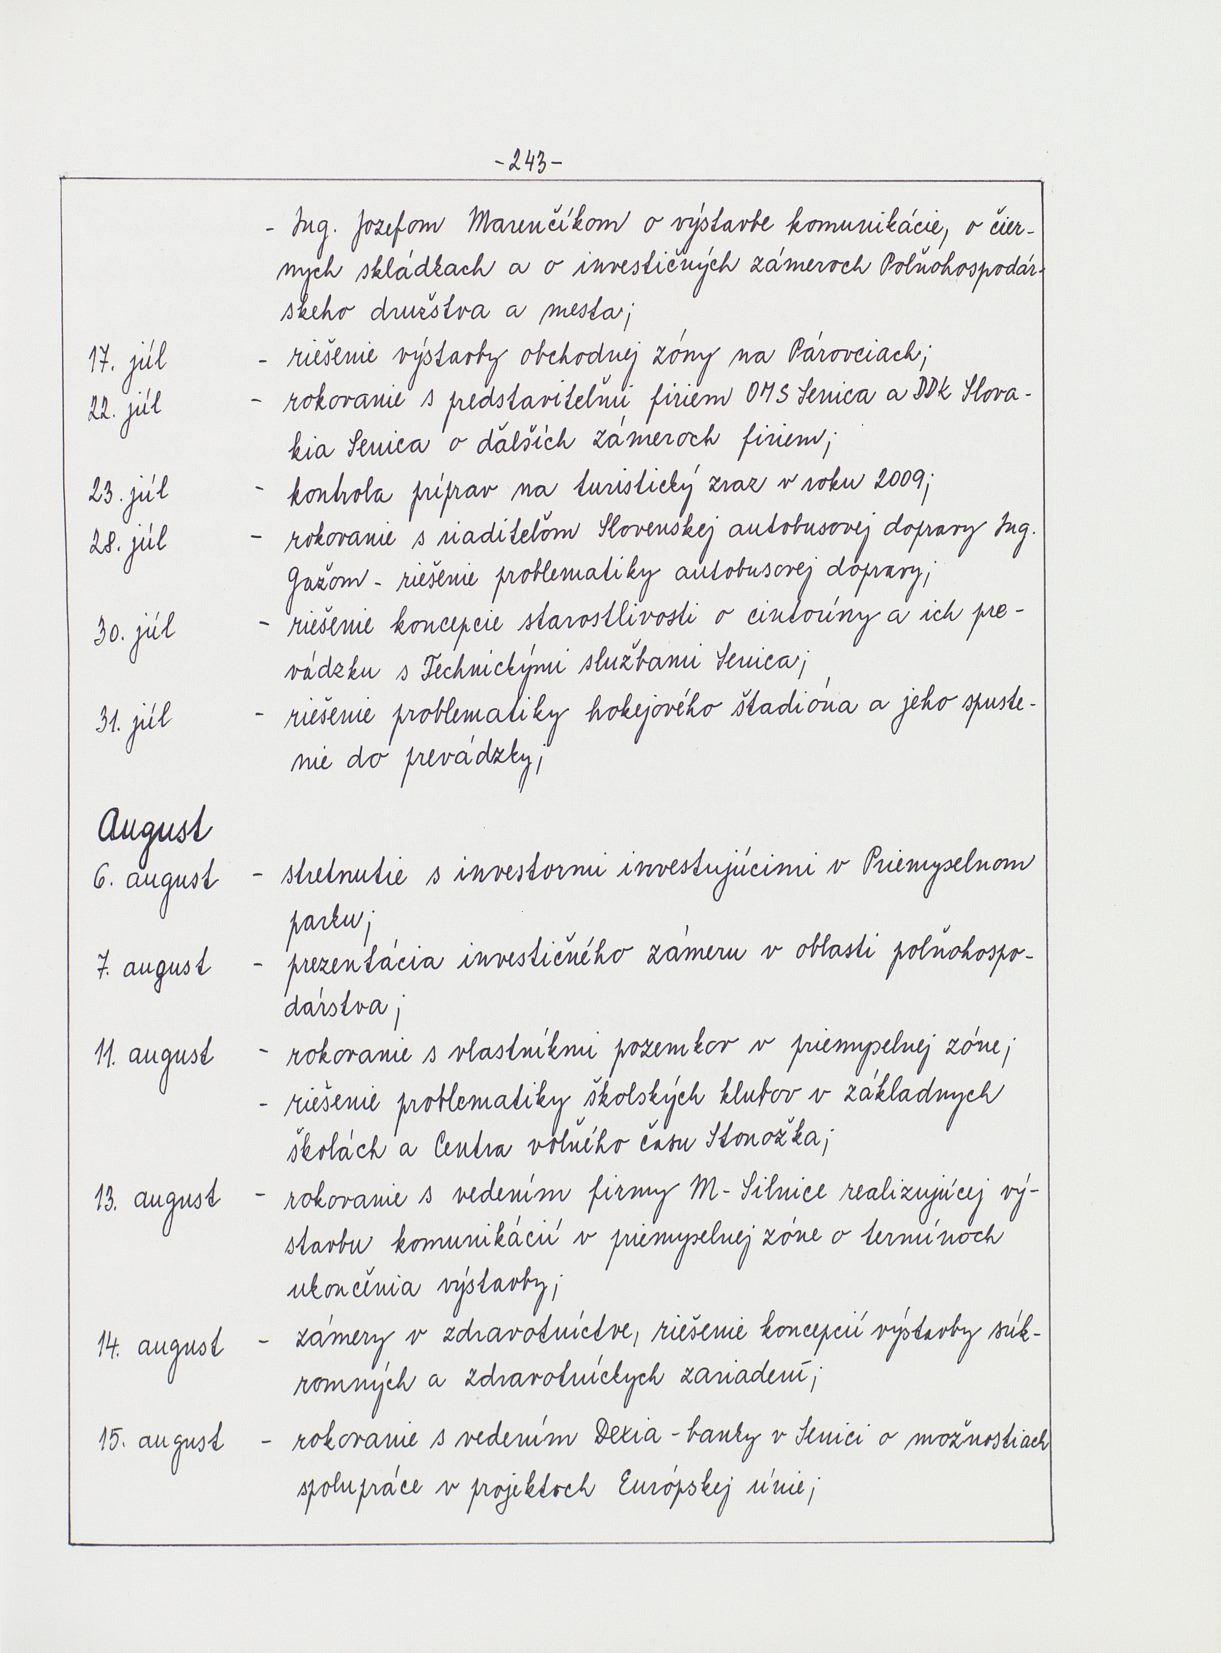 -243-
- Ing. Jozefom Marenčíkom o výstavbe komunikácie, o čier-
nych skládkach a o investičných zámeroch Poľnohospodár-
skeho družstva a mesta;
17. júl - riešenie výstavby obchodnej zóny na Párovciach;
22. júl - rokovanie s predstaviteľmi firiem OMS Senica a DDK Slova-
kia Senica o ďalších zámeroch firiem;
23. júl - kontrola príprav na turistický zraz v roku 2009;
28. júl - rokovanie s riaditeľom Slovenskej autobusovej dopravy Ing.
Gažom - riešenie problematiky autobusovej dopravy;
30. júl - riešenie koncepcie starostlivosti o cintoríny a ich pre-
vádzku s Technickými službami Senica;
31. júl - riešenie problematiky hokejového štadióna a jeho spuste-
nie do prevádzky;
August
6. august - stretnutie s investormi investujúcimi v Priemyselnom
parku;
7. august - prezentácia investičného zámeru v oblasti poľnohospo-
dárstva;
11. august - rokovanie s vlastníkmi pozemkov v priemyselnej zóne;
- riešenie problematiky školských klubov v základnych
školách a Centra voľného času Stonožka;
13. august - rokovanie s vedením firmy M-Silnice realizujúcej vý-
stavbu komunikácií v priemyselnej zóne o termínoch
ukončenia výstavby;
14. august - zámery v zdravotníctve, riešenie koncepcií výstavby súk-
romných a zdravotníckych zariadení;
15. august - rokovanie s vedením Dexia-banky v Senici o možnostiach
spolupráce v projektoch Európskej únie;